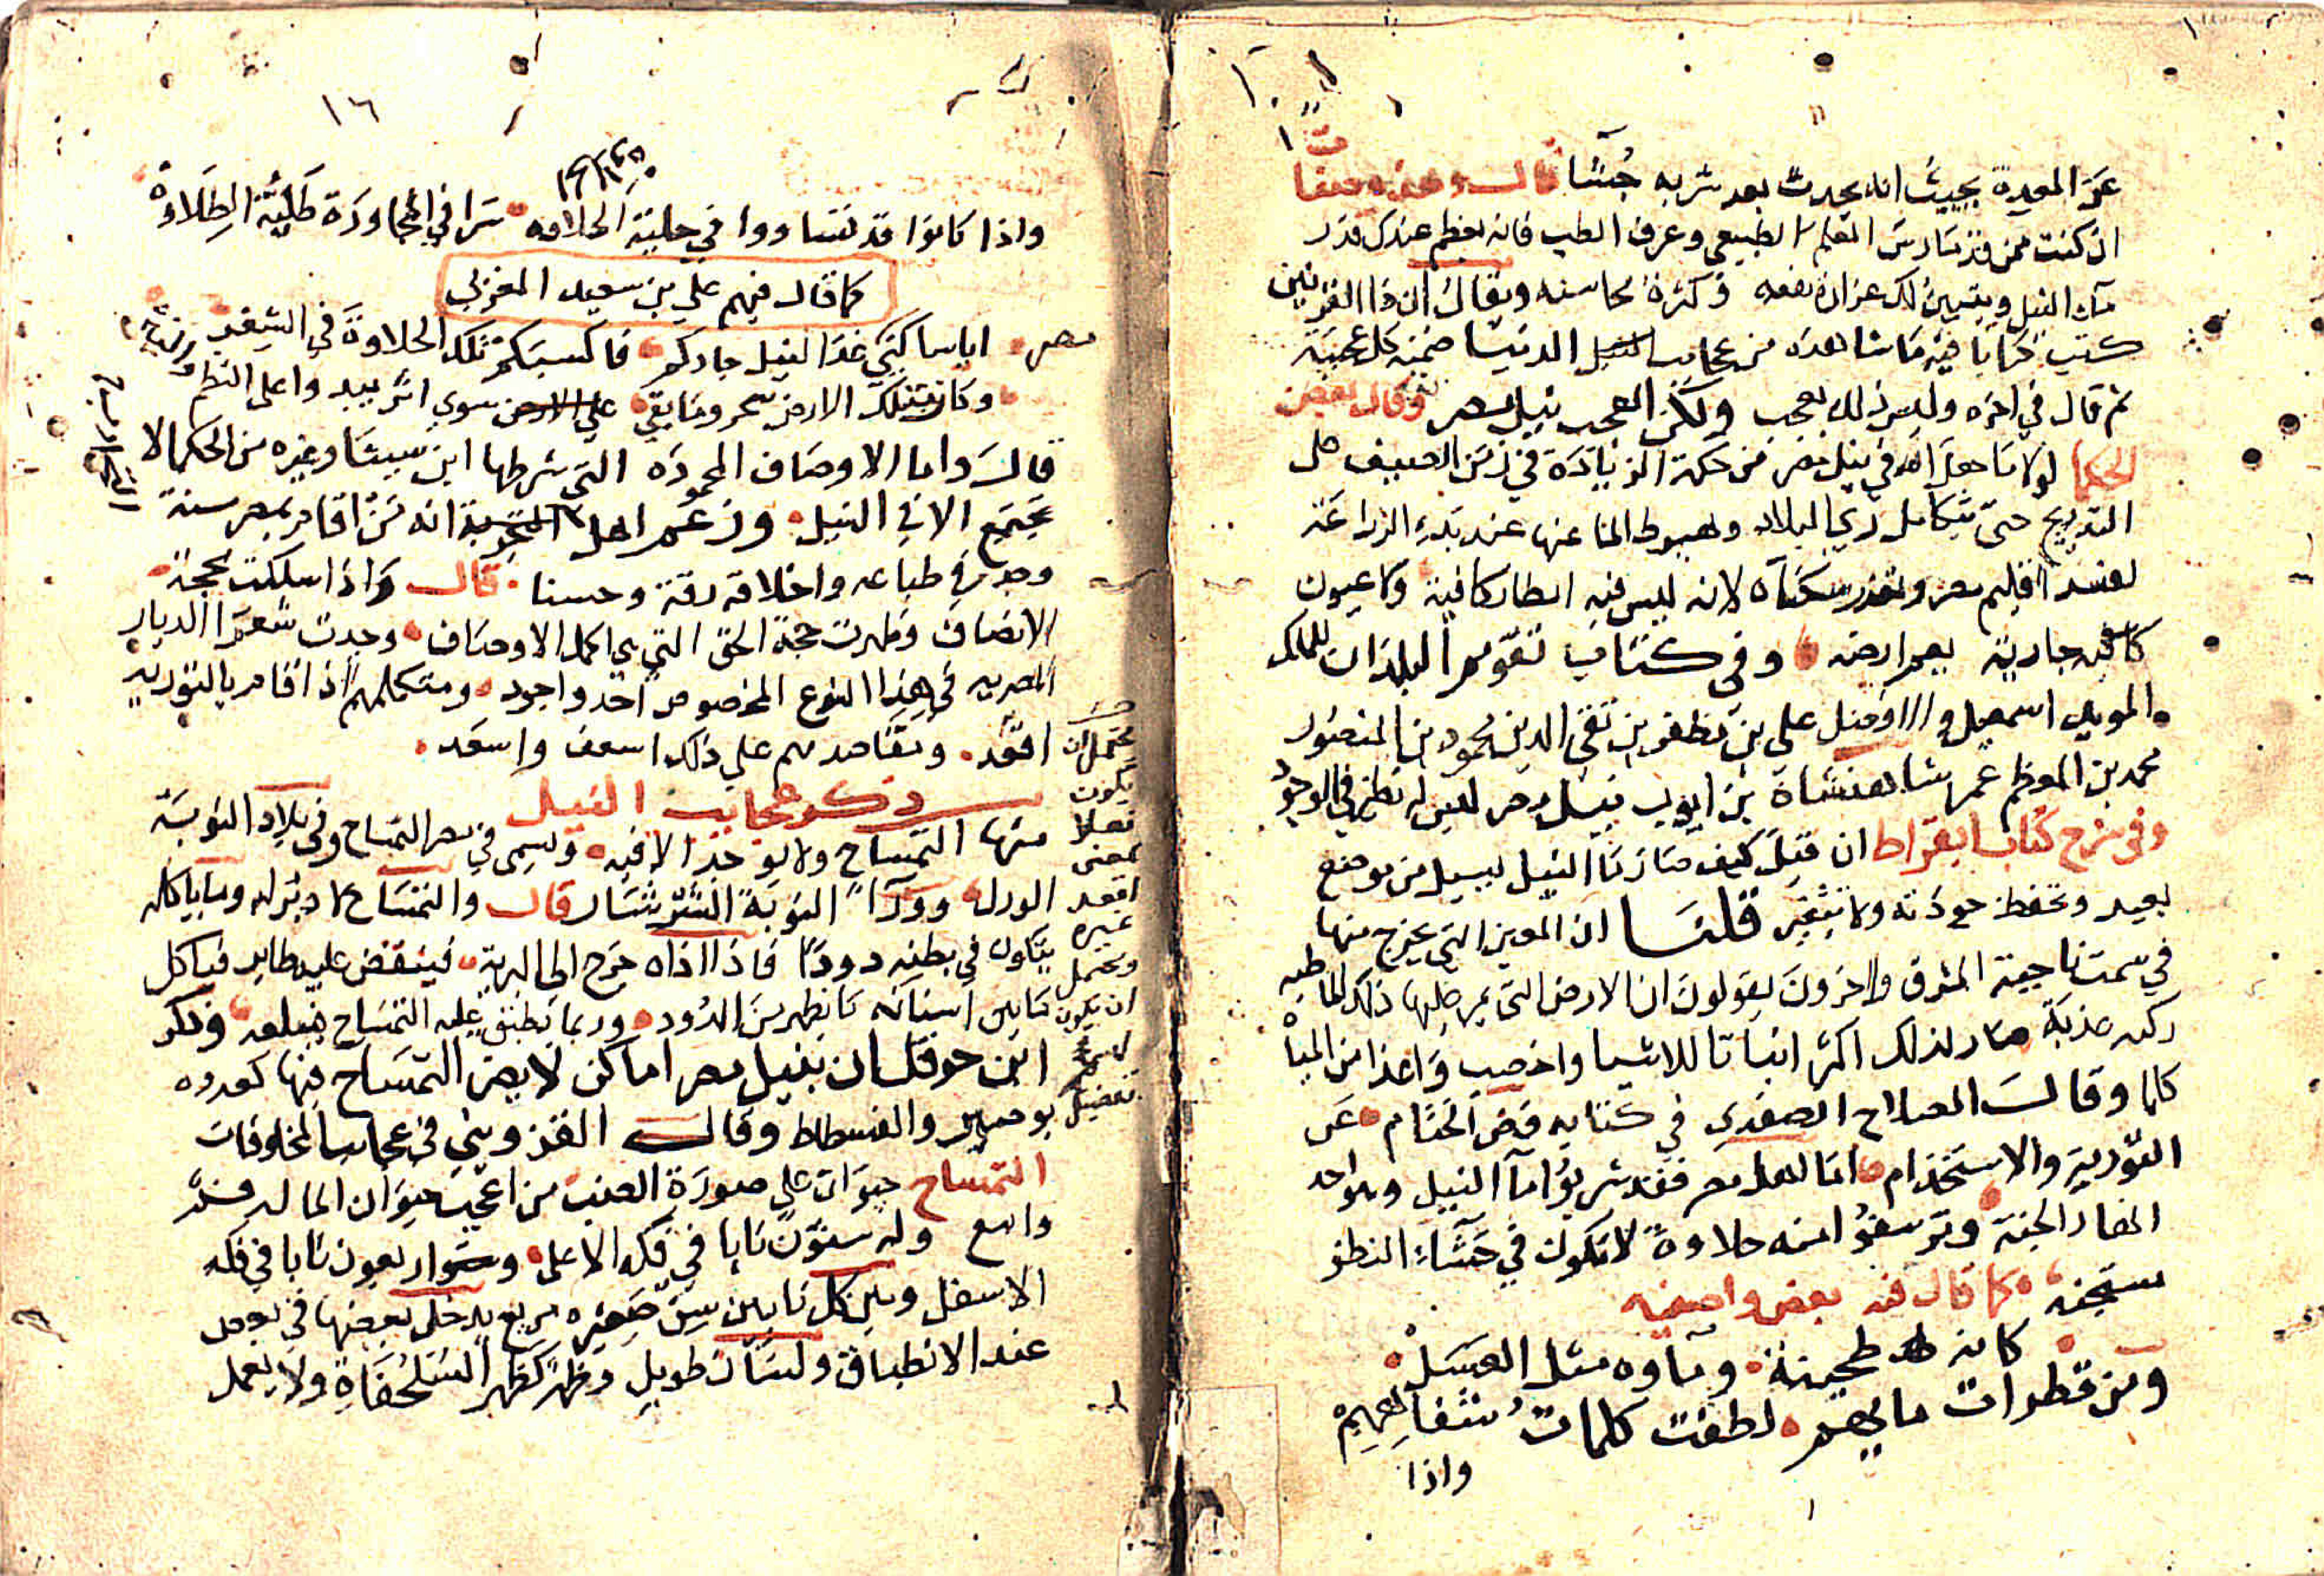 عن المعدة بحيث انه يحدث بعد شربه جشا قال وهذه صفا
ان كنت ممن قد مارس العلم الطبيعي وعرف الطب فانه يعظم عندك قدر
ماء النيل ويتبين لك غزارة نفعه وكثرة محاسنه ويقال ان ذا القرنين
كتب كتابا فيه ما شاهده من عجايب الدنيا ضمنه كل عجيبة
ثم قال في اخره وليس ذلك بعجب ولكن العجب نيل مصر وقال بعض
الحكما لولا ما جعل الله في نيل مصر من حكمة الزيادة في زمن الصيف على
التدريج حتى يتكامل ري البلاد وهبوط الما عنها عند بدء الزراعة
لفسد اقليم مصر وتعذر سكناه لانه ليس فيه امطار كافية ولا عيون
جارية يعم ارضه وفي كتاب تقويم البلدان للملك
المويد اسمعيل والافضل علي بن مظفر بن تقي الدين محمود بن المنصور
محمد بن المعظم عمر شاهنشاه بن ايوب نيل مصر ليس له نظير في الوجود
وفي شرح كتاب ابقراط ان قيل كيف صار ما النيل يسيل من موضع
بعيد وتحفظ جودته ولا يتغير قلنا ان العين التي يخرج منها
في سمت ناحية المشرق واخرون يقولون ان الارض التي يمر عليها ذلك الما طيبه
زكيه عذبة صار لذلك اكثر انباتا للاشيا واخصب واغذا من المياه
كلها وقال الصلاح الصفدي في كتابه فض الختام عن
التورية والاستخدام اما اهل مصر فقد شربوا ماء النيل وهو احد
انهار الجنة وترشفوا منه حلاوة لا تكون في حشاء النطو
سجنه كما قال فيه بعض واصفيه
كانه طحينة وماوه مثل العسل
ومن قطرات مايهم لطفت كلمات شفاههم
واذا
١٦
واذا كانوا قد تساووا في حلبة الحلاوه سرا في المجاورة طلية الطلاوة
كما قال فيهم علي بن سعيد المغربي
ايا ساكني مصر غدا النيل جاركم فاكسبكم تلك الحلاوة في الشعر
وكان بتلك الارض سحر وما بقي سوى اثر يبدو على النظم والنثر
قال واما الاوصاف المحمودة التي شرطها ابن سينا وغيره من الحكما لا
تجتمع الا في النيل وزعم اهل التجربة انه من اقام بمصر سنة
وجد في طباعه واخلاقه رقة وحسنا قال واذا سلكت محجة
الانصاف وظهرت حجة الحق التي هي اكمل الاوصاف وجدت شعرا الديار
المصريه في هذا النوع المخصوص احد واجود ومتكلمهم اذا اقام بالتورية
اقعد ومقاصدهم على ذلك اسعف واسعد
ذكر عجايب النيل
منها التمساح ولا يوجد الا فيه ويسمى في مصر التمساح وفي بلاد النوبة
الورل ووراء النوبة الشرشار قال والتمساح لا دبر له وما ياكله
يتكون في بطنه دودا فاذا اذاه خرج الى البرية فينقض عليه طاير فياكل
ما بين اسنانه ما يظهر من الدود وربما يطبق عليه التمساح فيبلعه وذكر
ابن حوقل ان بنيل مصر اماكن لا يضر التمساح فيها كعدوه
بوصير والفسطاط وقال القزويني في عجايب المخلوقات
التمساح حيوان على صورة الضب من اعجب حيوان الما له فم
واسع وله ستون نابا في فكه الاعلى واربعون نابا في فكه
الاسفل وبين كل نابين سن صغيره مربع يدخل بعضها في بعض
عند الانطباق ولسان طويل وظهر كظهر السلحفاة ولا يعمل
يحتمل ان
يكون
فعلا
بمعنى
اقعد
غيره
ويحتمل
ان يكون
اسم
تفضيل